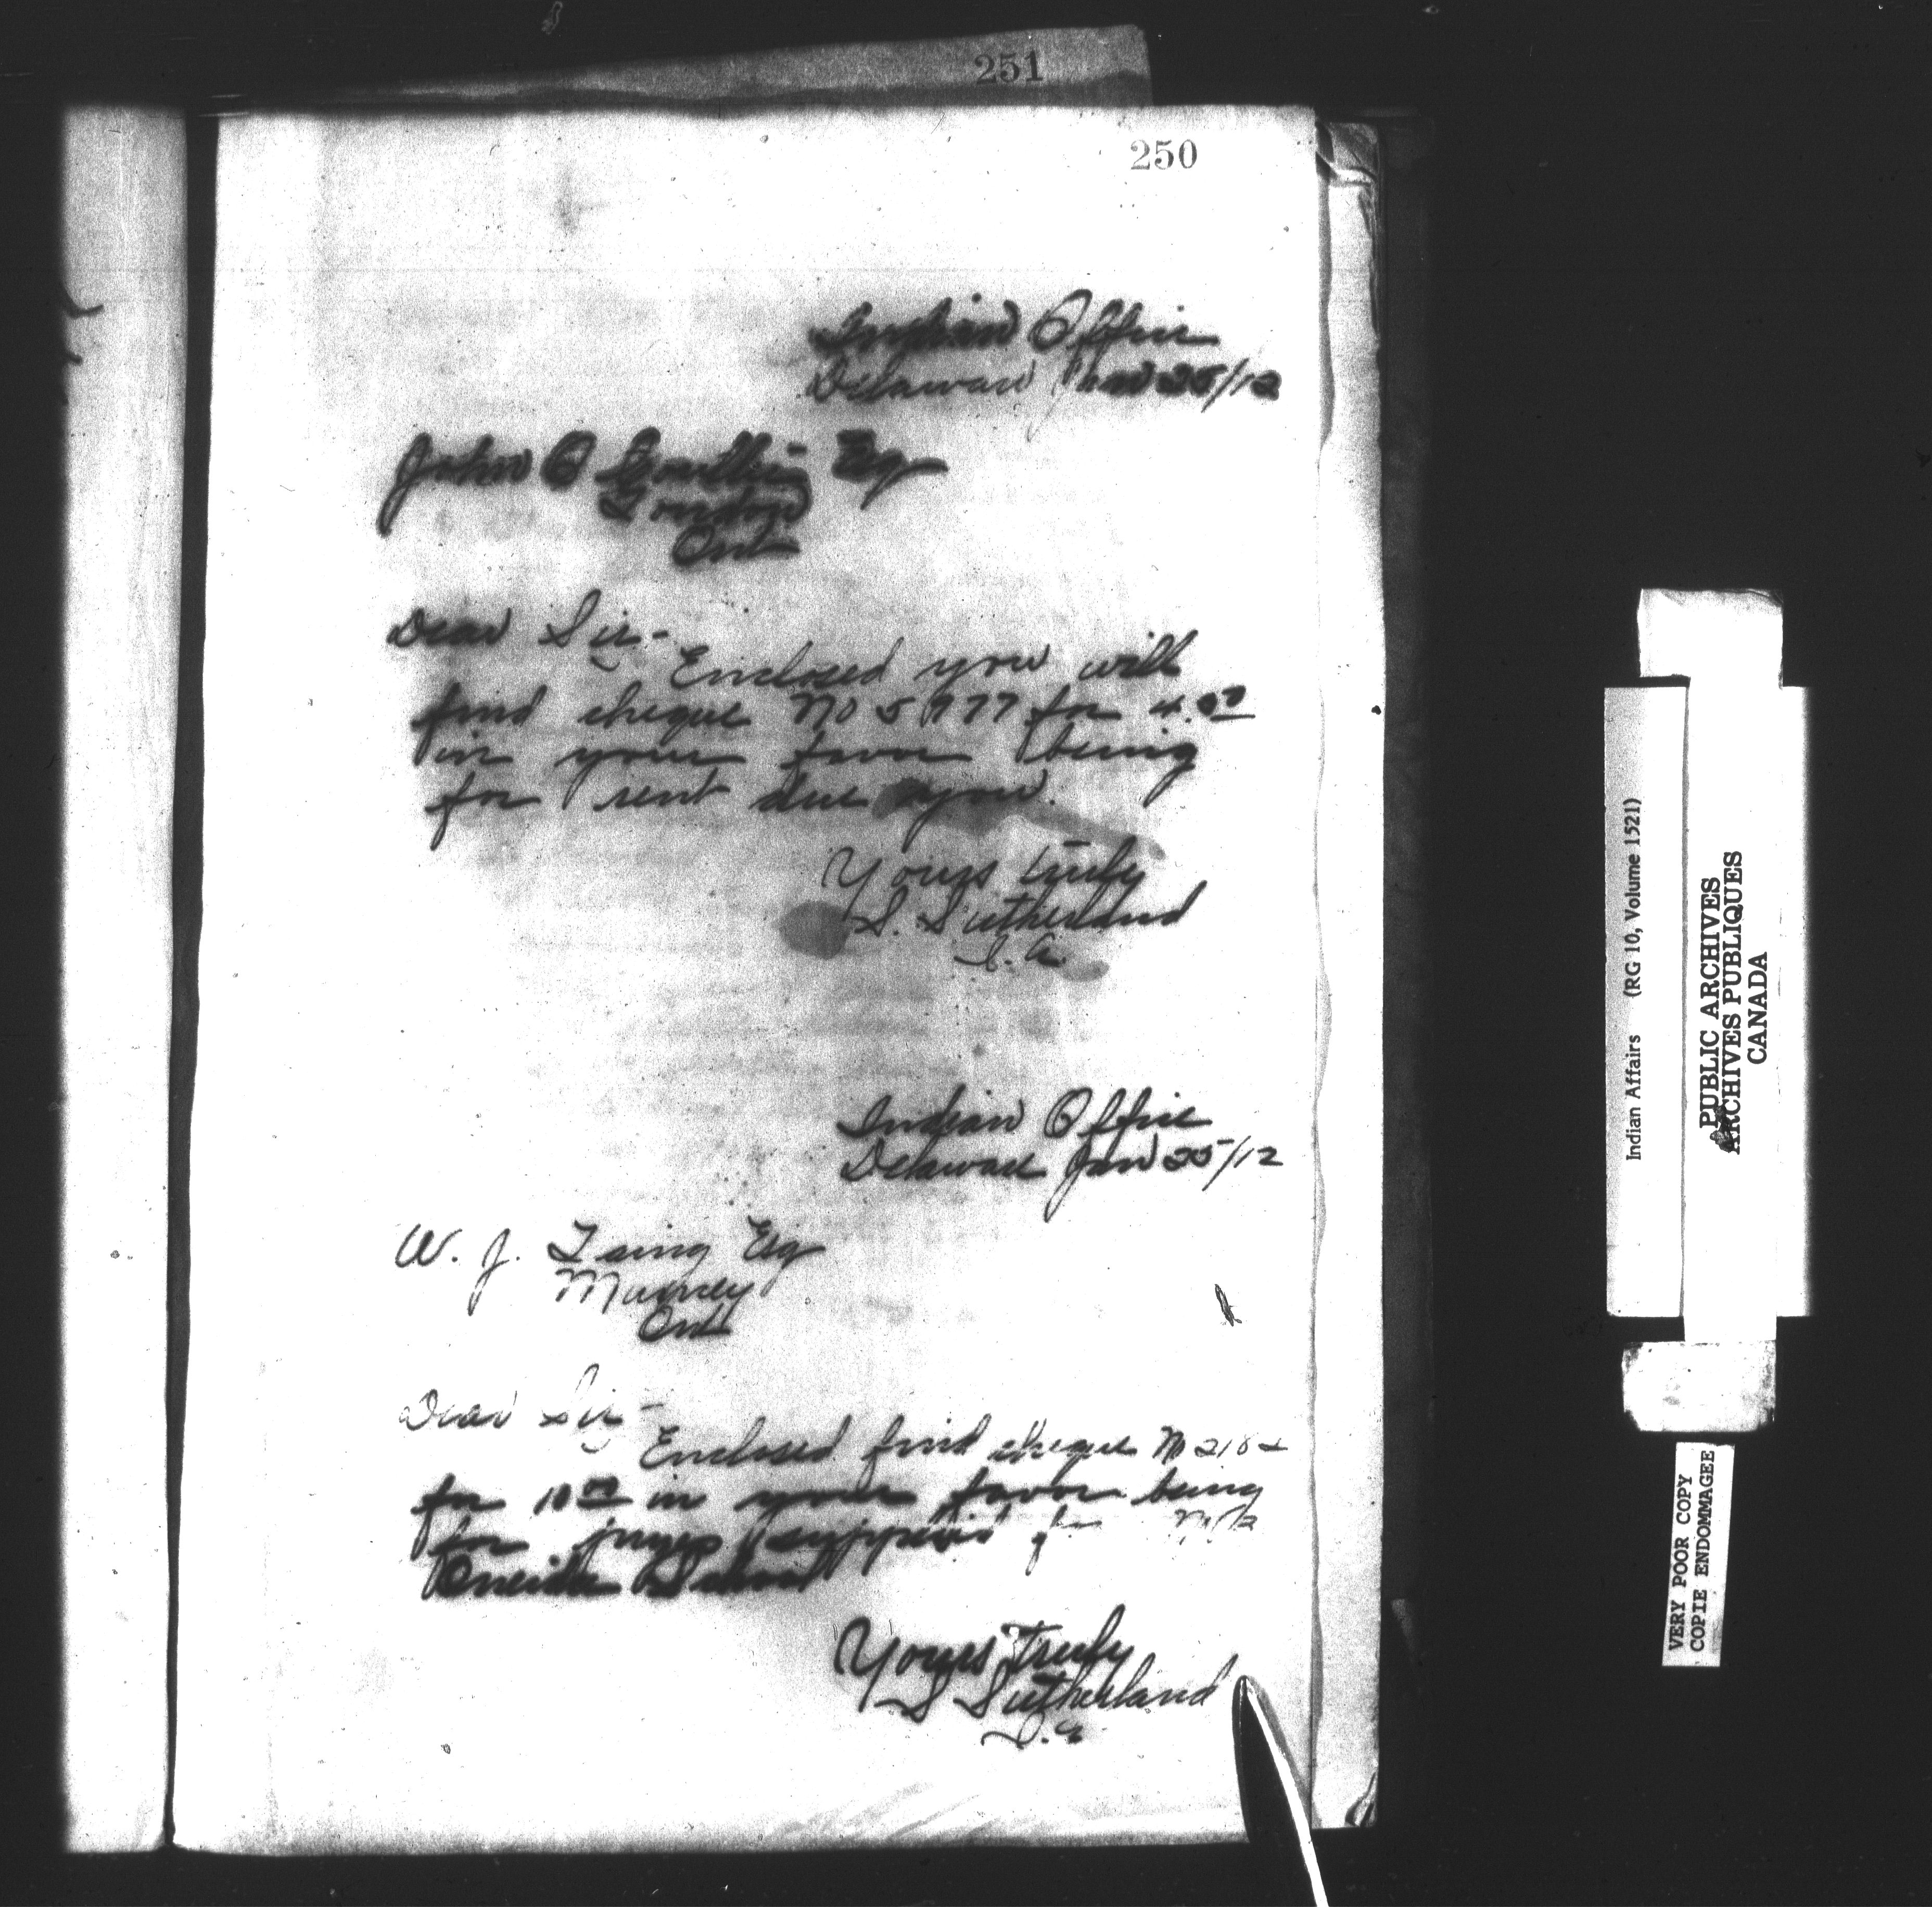 251
250
Indian Office
Delaware Jan 25/12
John O Esq
London
Ont
Dear Sir -
Enclosed you will
find cheque No 5977 for 4.00
in your favor being
for rent due you.
Yours truly
S. Sutherland
I. A.
Indian Office
Delaware Jan 25/12
W. J. Laing Esq
Muncey
Ont
Dear Sir -
Enclosed find cheque No 218
for 10 00 in your favor being
for supplied
Oneida School
Yours truly
S Sutherland
I. A.
Indian Affairs (RG 10, Volume 1521)
PUBLIC ARCHIVES
ARCHIVES PUBLIQUES
CANADA
VERY POOR COPY
COPIE ENDOMMAGEE